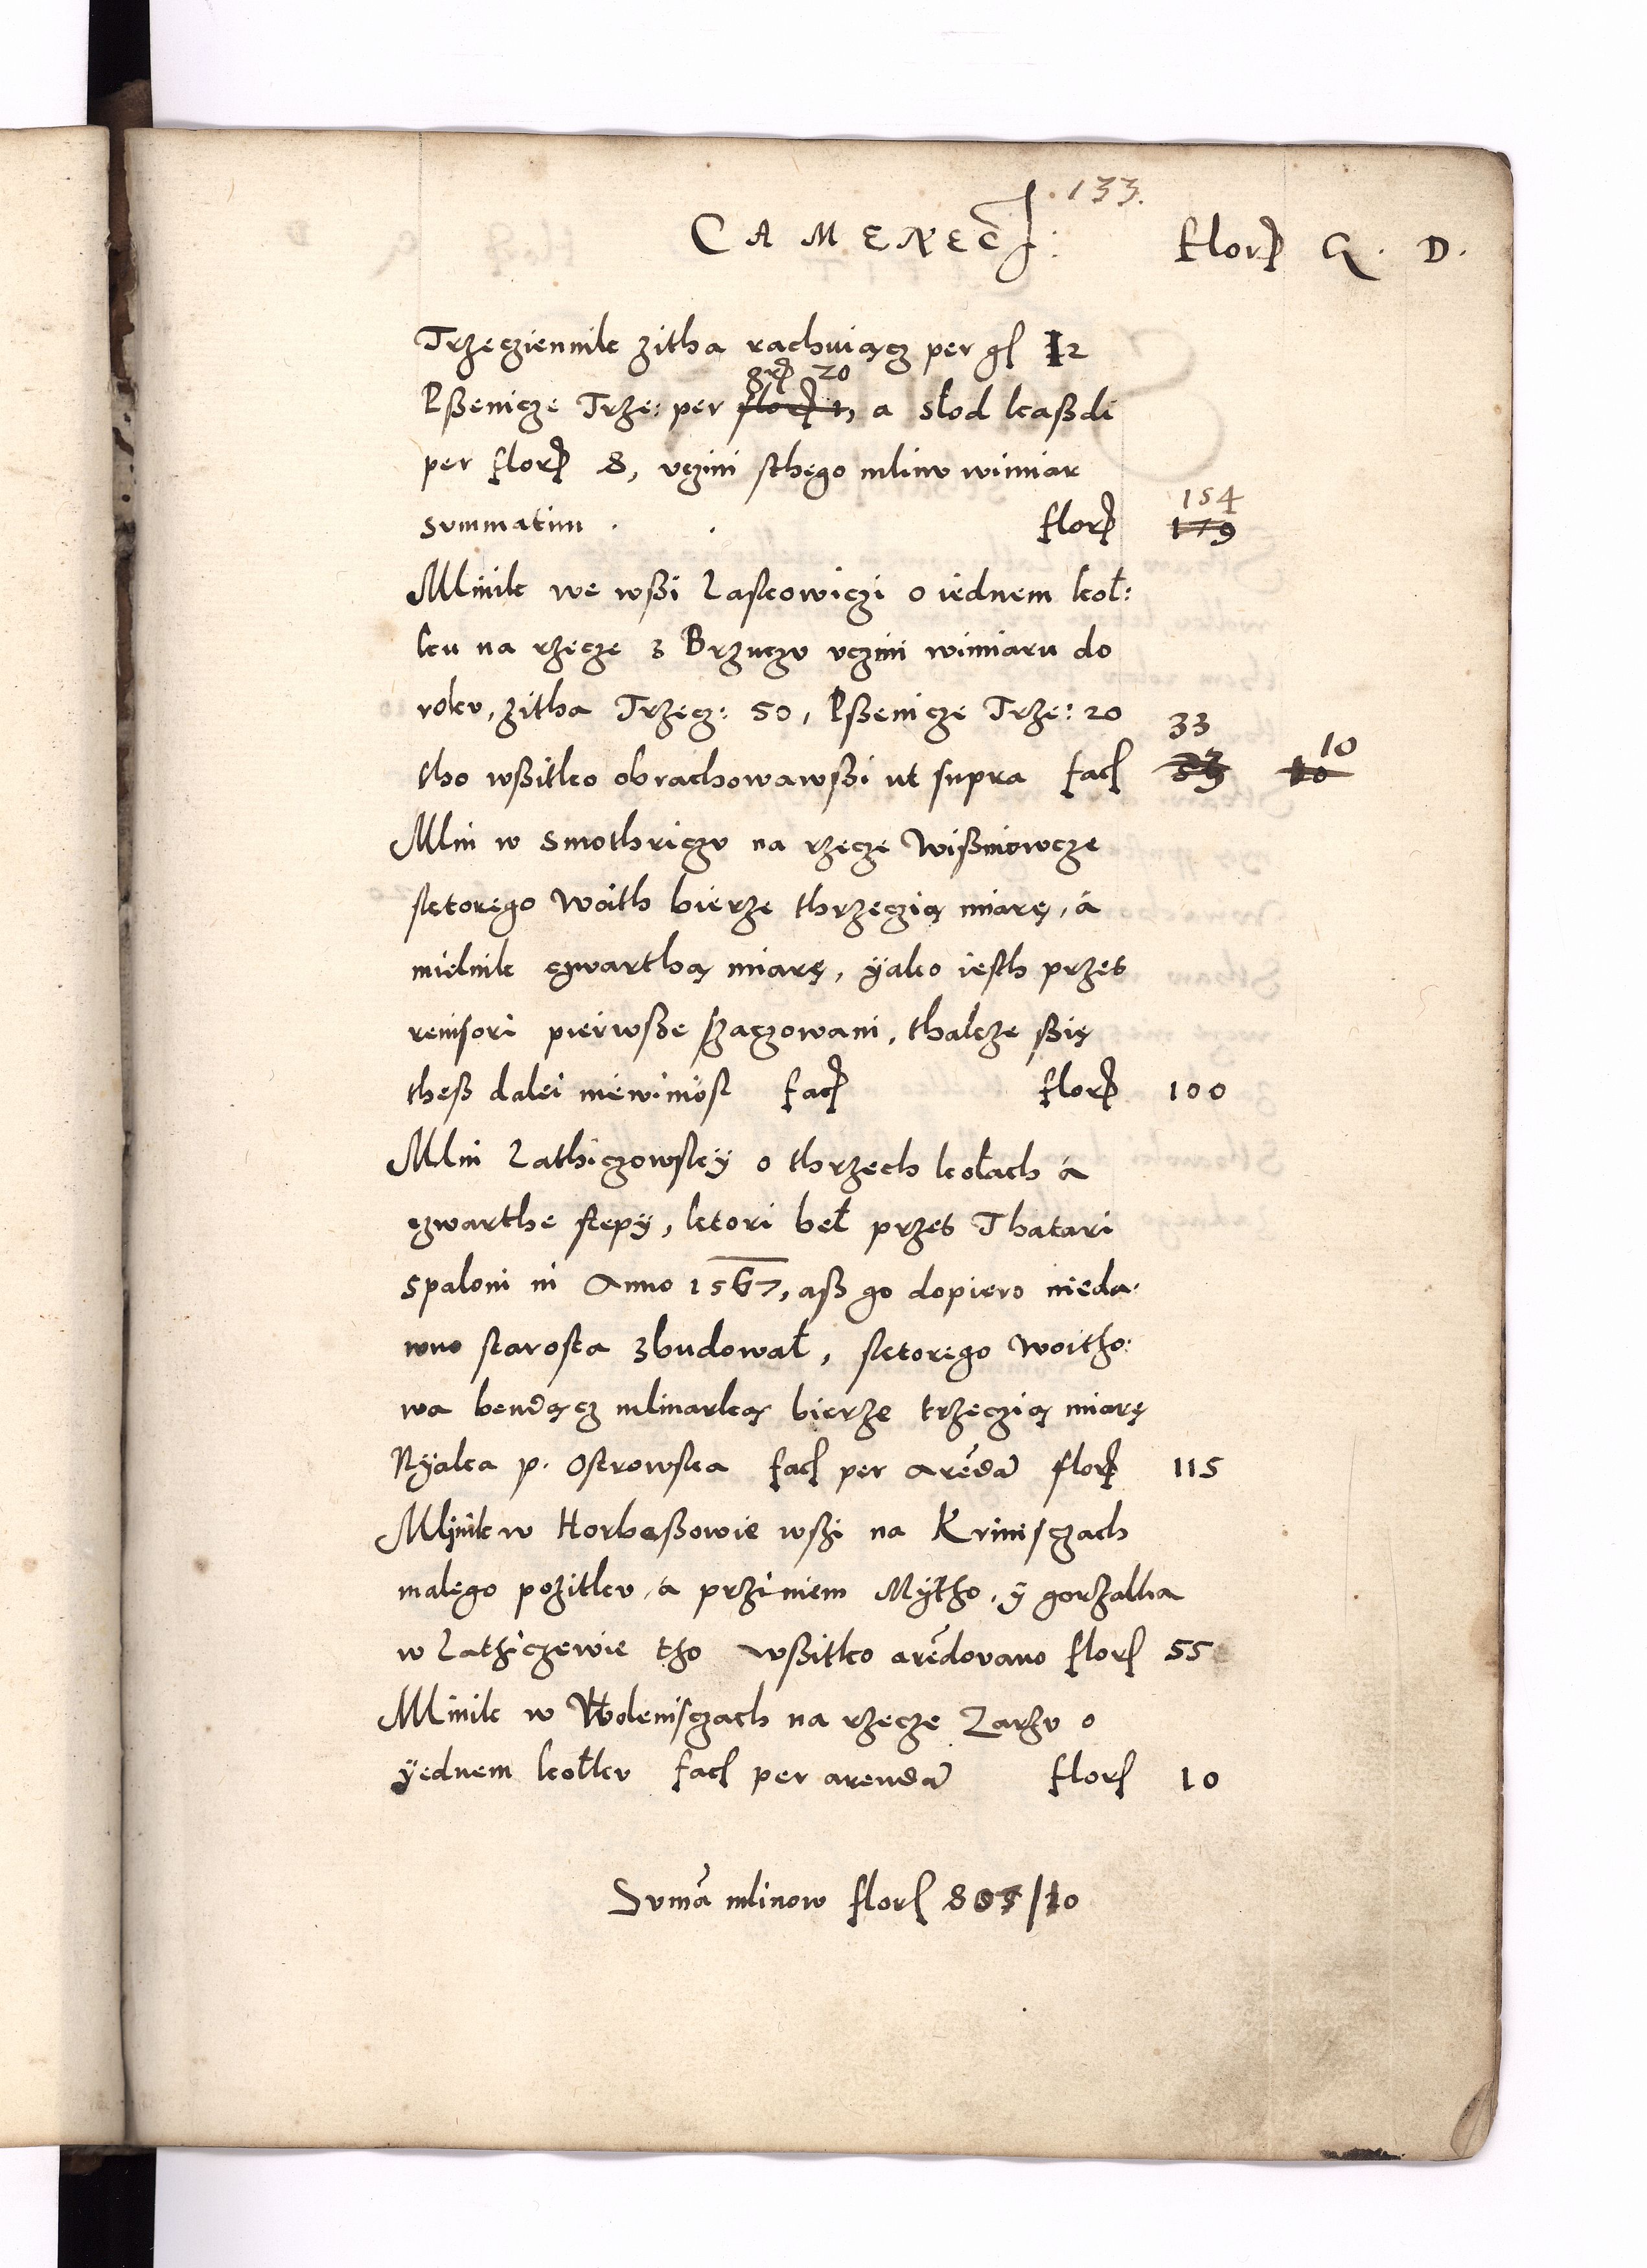 133.
CAMENECZ: flor G. D.
Trzecziennik zitha rachuiącz per gr 12
gr 20
Pßenicze Trze: per flor 1, a słod kaßdi
per flor 8, vczini sthego mlinv wimiar
summatim . . flor 154 179
Mlinik we wßi Laskowiczi o iednem koł:
ku na rzecze z Brznczv vczini wimiaru do
rokv, zitha Trzecz: 50, Pßenicze Trze: 20 33
tho wßitko obrachowawßi ut supra fac 10
Mlin w Smothriczv na rzecze Wißniowcze
sktorego Woith bierze thrzeczią miarę, á
mielnik czwarthą miarę, ÿako iesth przes
revisori pierwsße szaczowani, thakze ßię
theß dalei niewiniosł fac flor 100
Mlin Lathiczowskÿ o thrzech kołach á
czwarthe stepÿ, ktori beł przes Thatari
spaloni in Anno 1567, aß go dopiero nieda.
wno starosta zbudował, sktorego Woitho:
wa bendącz mlinarką bierze trzeczią miarę
Nÿaka p. Ostrowska fac per arēda flor 115
Mlÿnik w Horbaßowie wßi na Kriniszczach
małego pozitkv, a prziniem Mÿtho, ÿ gorzałka
w Lathiczewie tho wßitko arēdovano flor 55
Mlinik w Wołeniszczach na rzecze Zarzv o
ÿednem kołkv fac per arenda flor 10
Svmā mlinow flor 807/10